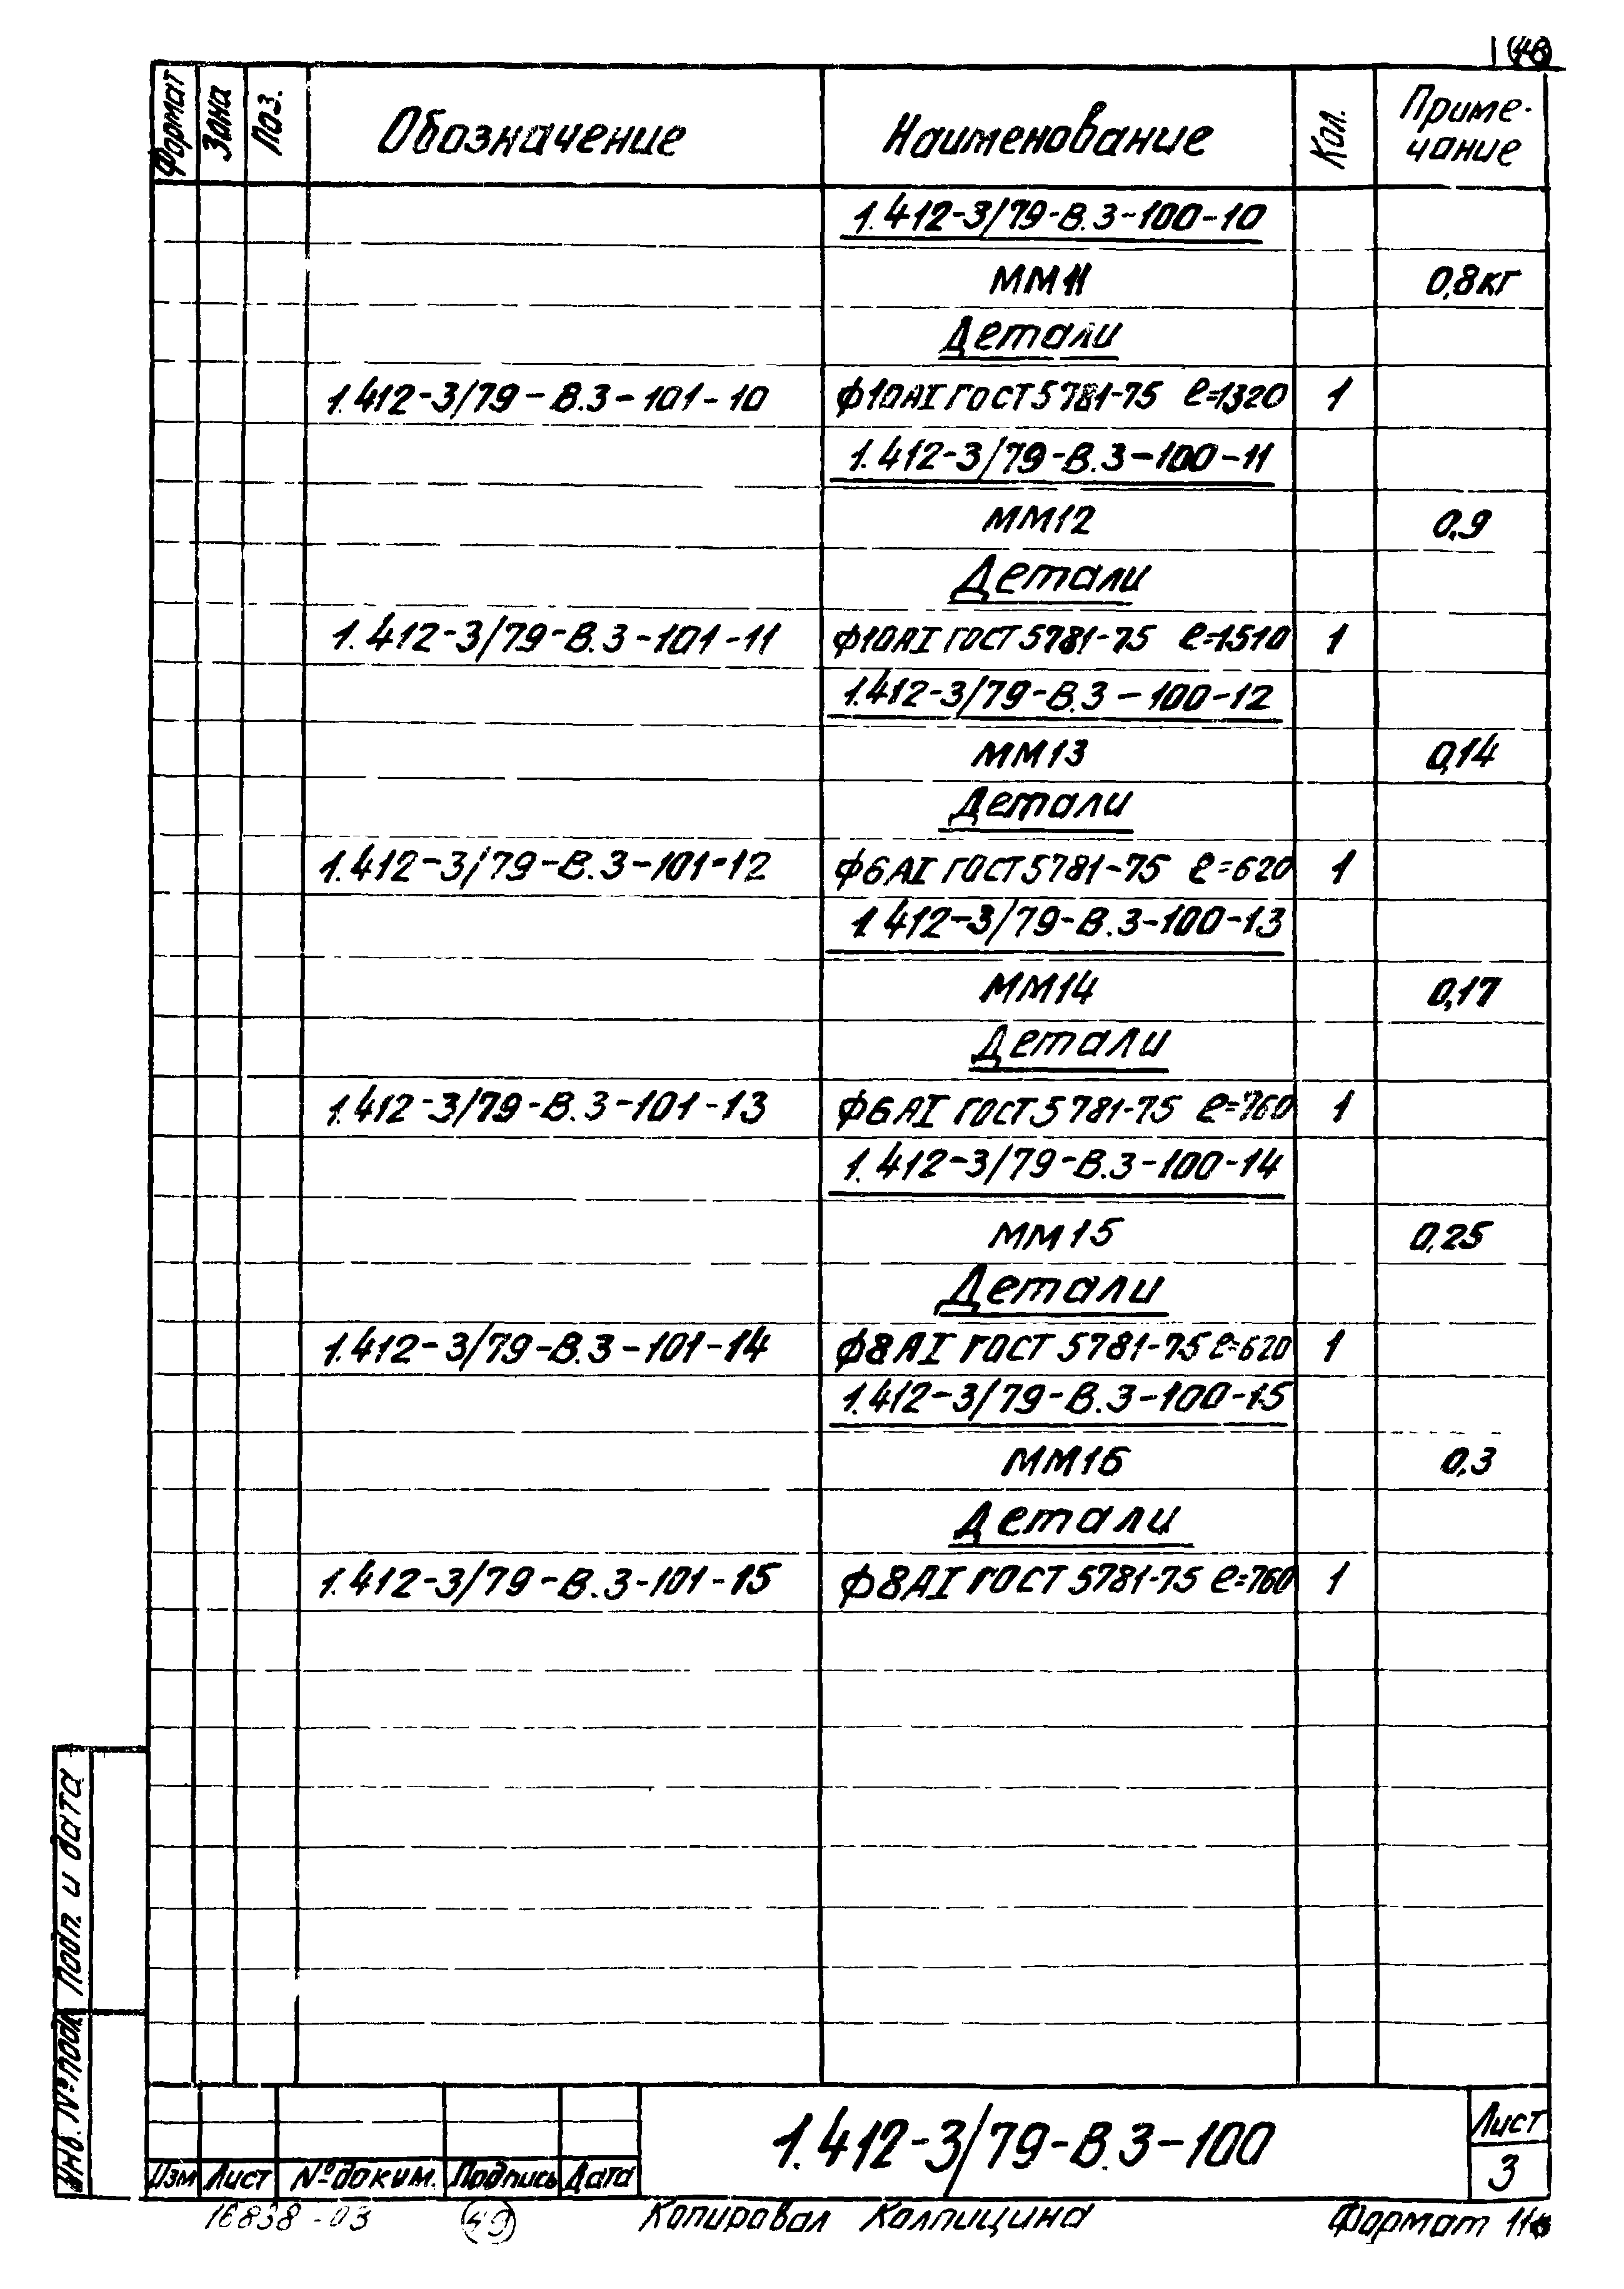 48
Формат Зона Поз. Обозначение Наименование Кол. Приме-
чание
1.412-3/79-В.3-100-10
ММ11 0,8кг
Детали
1.412-3/79-В.3-101-10 ф10АI ГОСТ 5781-75 ℓ=1320 1
1.412-3/79-В.3-100-11
ММ12 0,9
Детали
1.412-3/79-В.3-101-11 ф10АI ГОСТ 5781-75 ℓ=1510 1
1.412-3/79-В.3-100-12
ММ13 0,14
Детали
1.412-3/79-В.3-101-12 ф6АI ГОСТ 5781-75 ℓ=620 1
1.412-3/79-В.3-100-13
ММ14 0,17
Детали
1.412-3/79-В.3-101-13 ф6АI ГОСТ 5781-75 ℓ=760 1
1.412-3/79-В.3-100-14
ММ15 0,25
Детали
1.412-3/79-В.3-101-14 ф8АI ГОСТ 5781-75 ℓ=620 1
1.412-3/79-В.3-100-15
ММ16 0,3
Детали
1.412-3/79-В.3-101-15 ф8АI ГОСТ 5781-75 ℓ=760 1
Подп. и дата
Инв. № подл
1.412-3/79-В.3-100
Лист
3
Изм Лист № докум. Подпись Дата
16838-03 49 Копировал Колпицина Формат